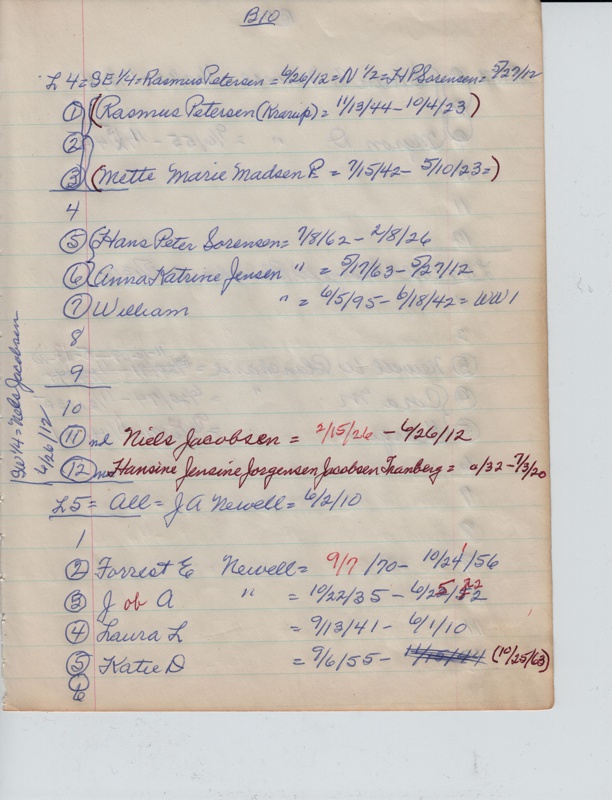 B10
L 4 = SE 1/4 = Rasmus Petersen = 6/26/12 = N 1/2 = H P Sorensen = 5/27/12
1 (Rasmus Petersen (Krarup) = 11/13/44 - 10/4/23)
2
3 (Mette Marie Madsen P. = 7/15/42 - 5/10/23 =)
4
5 Hans Peter Sorensen = 7/8/62 - 2/8/26
6 Anna Katrine Jensen " = 5/17/63 - 5/27/12
7 William " = 6/5/95 - 6/18/42 = WW 1
8
9
10
SW 1/4 = Niels Jacobsen
6/26/12
11 nd Niels Jacobsen = 2/15/26 - 6/26/12
12 nd Hansine Jensine Jorgensen Jacobsen Tranberg = a/32 - 7/3/20
L5 = All = J A Newell = 6/2/10
1
2 Forrest E Newell = 9/7/70 - 10/24/56
3 J ob A " = 10/22/35 - 6/25/22
4 Laura L = 9/13/41 - 6/1/10
5 Katie D = 9/6/55 - (10/25/63)
6